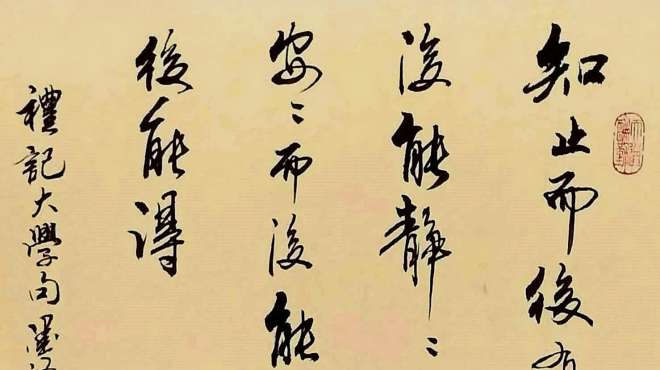 知止而後有
後能靜〻
安〻而後能
後能得
禮記大學句墨